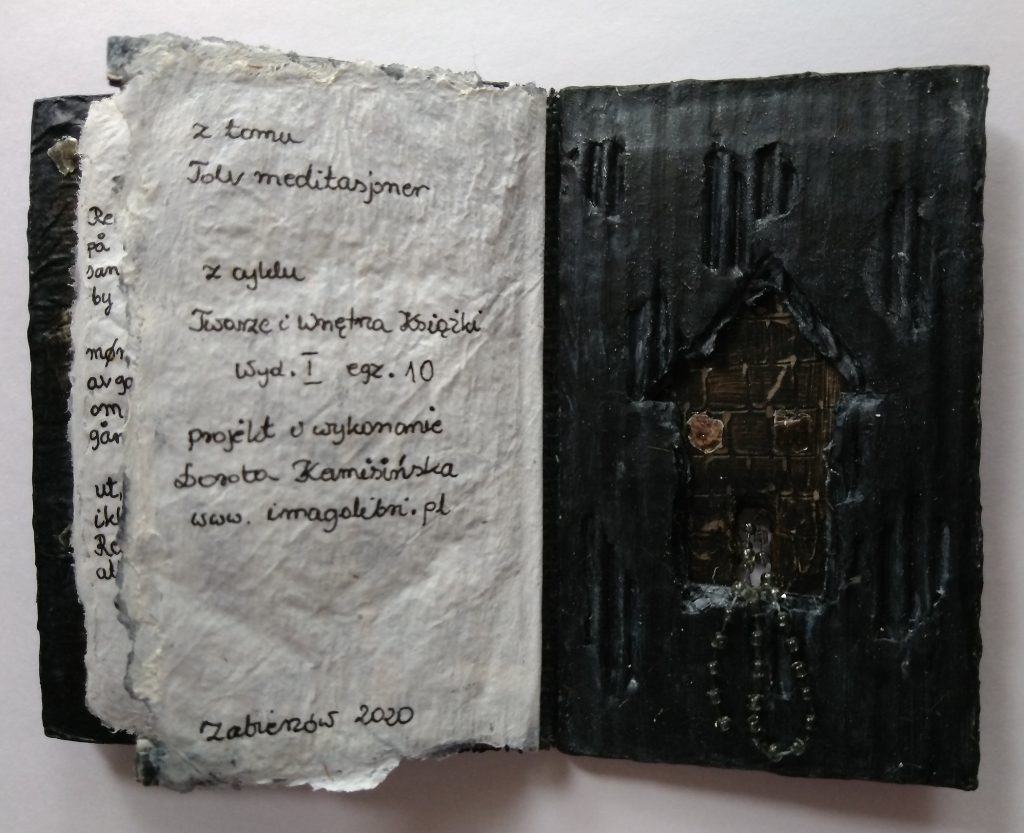 på
by
av go
om
ut,
z tomu
Tolv meditasjoner
z cyklu
Twarze i Wnętrza Książki
Wyd. I egz. 10
projekt i wykonanie
Dorota Kamisińska
www. imagolibri.pl
Zabierzów 2020